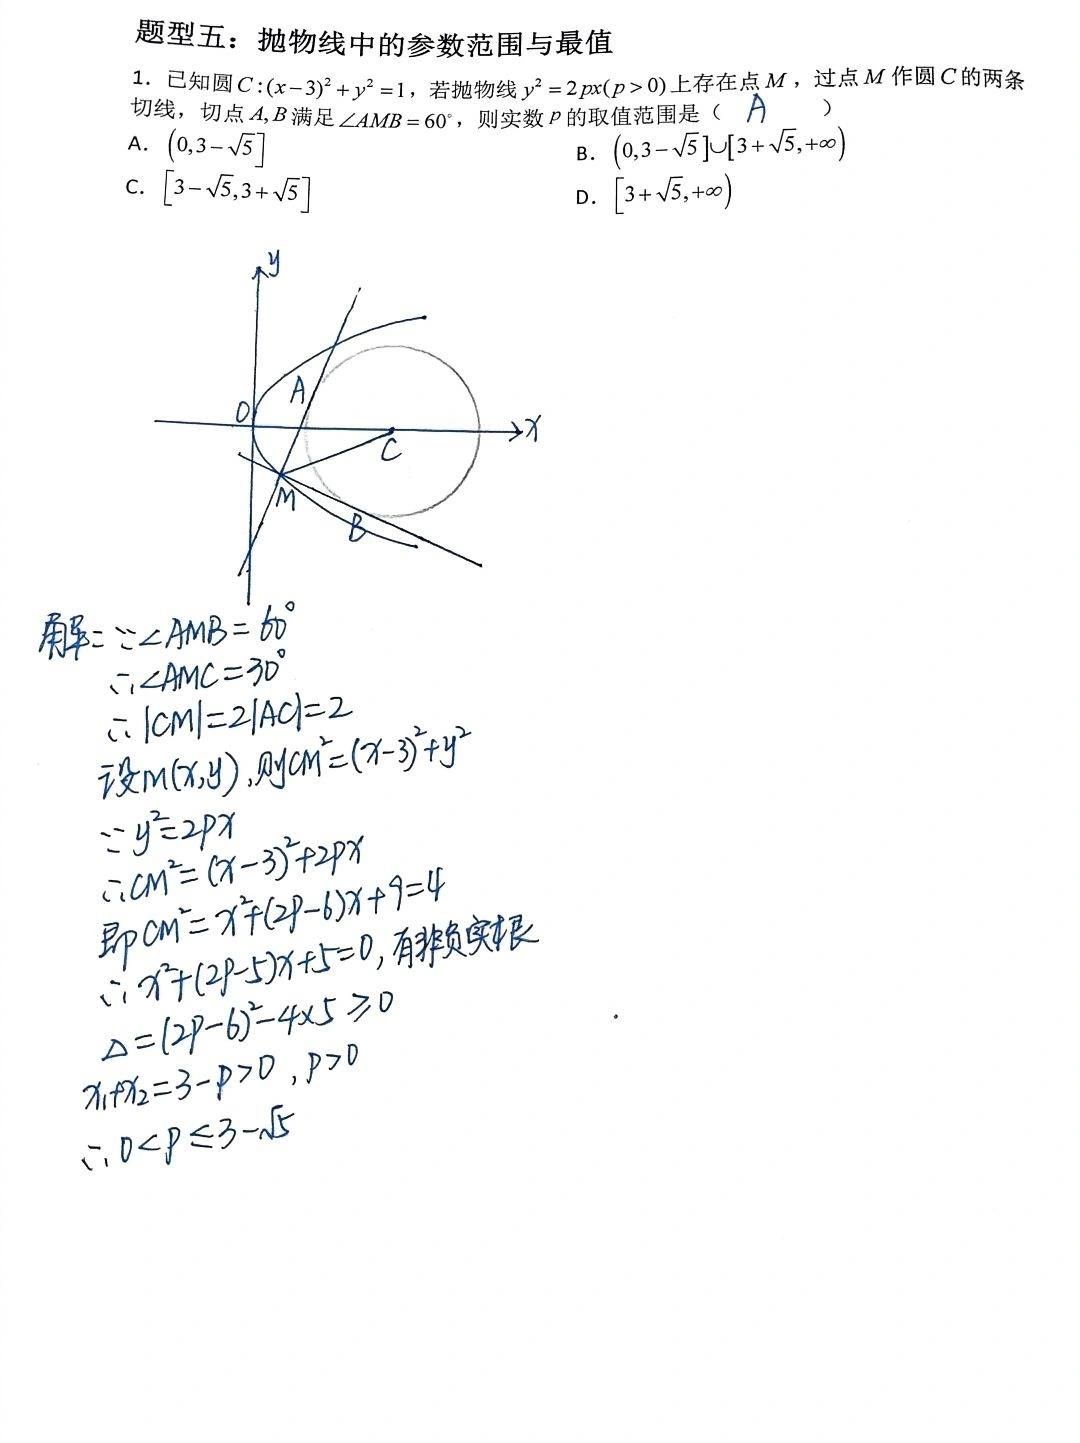 题型五：抛物线中的参数范围与最值
1．已知圆C:(x−3)²+y²=1，若抛物线y²=2px(p>0)上存在点M，过点M作圆C的两条
切线，切点A,B满足∠AMB=60°，则实数P的取值范围是（ A ）
A．(0,3−√5] B．(0,3−√5]∪[3+√5,+∞)
C．[3−√5,3+√5] D．[3+√5,+∞)
y
A
O
x
C
M
B
解：∵∠AMB=60°
∴∠AMC=30°
∴|CM|=2|AC|=2
设M(x,y),则CM²=(x-3)²+y²
∵y²=2px
∴CM²=(x-3)²+2px
即CM²=x²+(2p-6)x+9=4
∴x²+(2p-5)x+5=0,有非负实根
△=(2p-6)²-4×5≥0
x₁+x₂=3-p>0,p>0
∴0<p≤3-√5